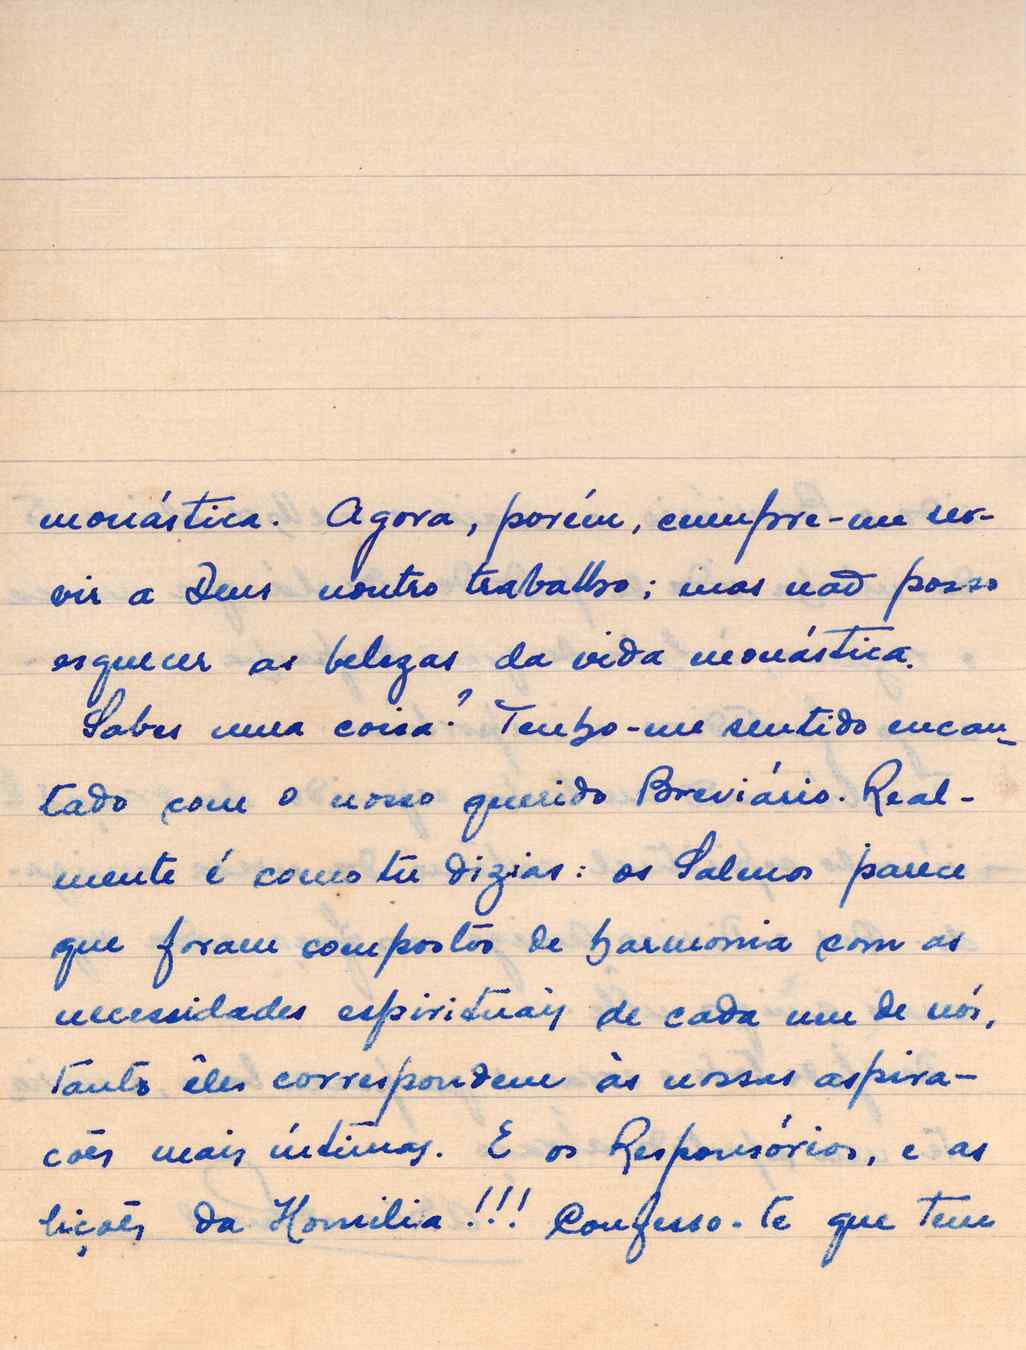 monástica. Agora, porém, cumpre-me ser-
vir a Deus noutro trabalho; mas não posso
esquecer as belezas da vida monástica.
Sabes uma coisa? Tenho-me sentido encan-
tado com o nosso querido Breviário. Real-
mente é como tu dizias: os Salmos parece
que foram compostos de harmonia com as
necessidades espirituais de cada um de nós,
tanto êles correspondem às nossas aspira-
cões mais íntimas. E os Responsórios, e as
lições da Homilia!!! Confesso-te que tem